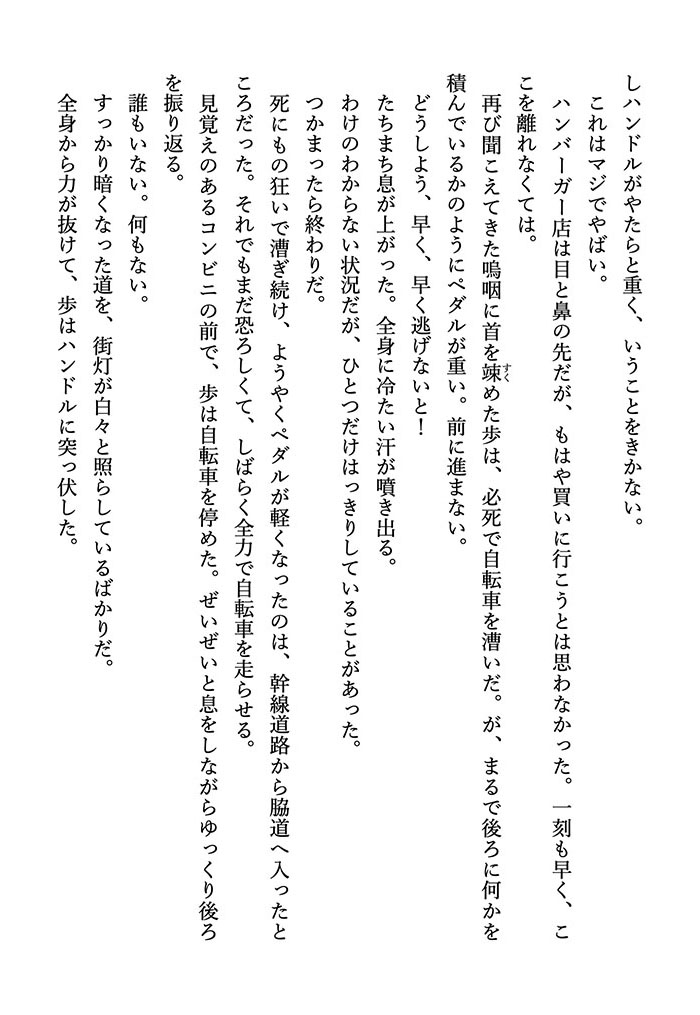 しハンドルがやたらと重く、いうことをきかない。
これはマジでやばい。
ハンバーガー店は目と鼻の先だが、もはや買いに行こうとは思わなかった。一刻も早く、こ
こを離れなくては。
再び聞こえてきた嗚咽に首を竦めた歩は、必死で自転車を漕いだ。が、まるで後ろに何かを
すく
積んでいるかのようにペダルが重い。前に進まない。
どうしよう、早く、早く逃げないと！
たちまち息が上がった。全身に冷たい汗が噴き出る。
わけのわからない状況だが、ひとつだけはっきりしていることがあった。
つかまったら終わりだ。
死にもの狂いで漕ぎ続け、ようやくペダルが軽くなったのは、幹線道路から脇道へ入ったと
ころだった。それでもまだ恐ろしくて、しばらく全力で自転車を走らせる。
見覚えのあるコンビニの前で、歩は自転車を停めた。ぜいぜいと息をしながらゆっくり後ろ
を振り返る。
誰もいない。何もない。
すっかり暗くなった道を、街灯が白々と照らしているばかりだ。
全身から力が抜けて、歩はハンドルに突っ伏した。